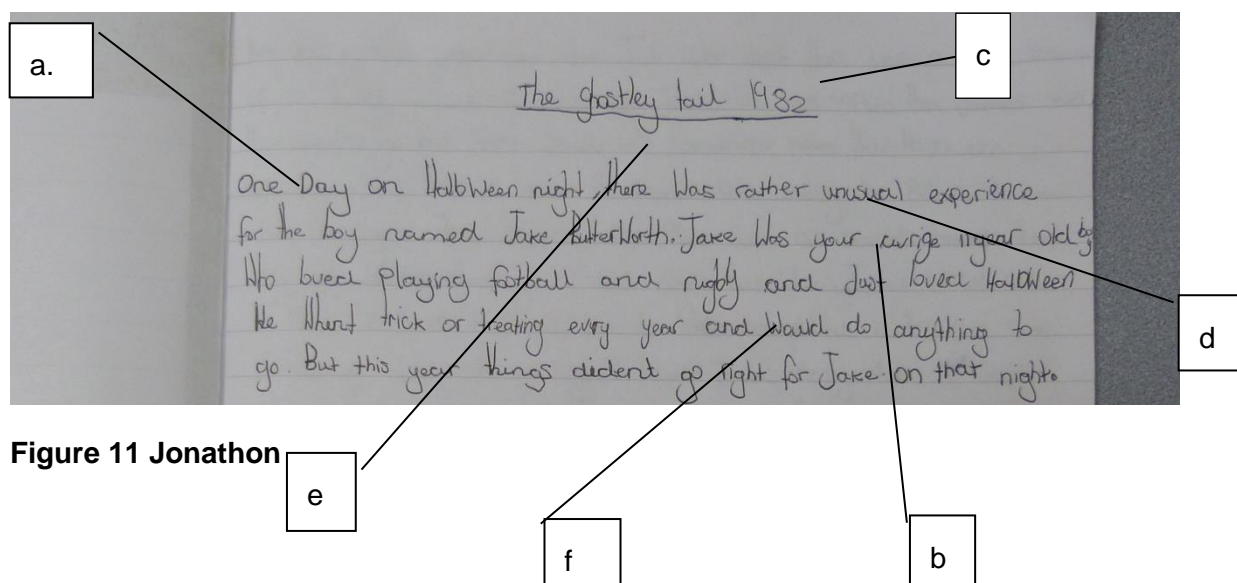 a.
c
The ghostley tail 1982
One Day on HalloWeen night, there Was rather unusual experience
for the boy named Jake ButterWorth. Jake Was your avrige 11year old boy
Who loved playing football and rugby and Just loved HalloWeen
He Whent trick or treating evry year and Would do anything to
go. But this year things dident go right for Jake on that night.
d
Figure 11 Jonathon
e
f
b